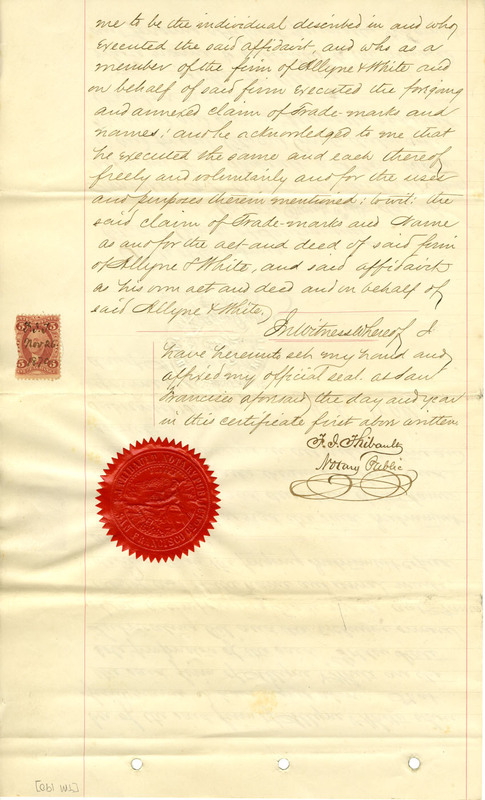 me to be the individual described in and who
executed the said affidavit, and who as a
member of the firm of Allyne & White and
on behalf of said firm executed the forgoing
and annexed claim of Trade-marks and
names; and he acknowledged to me that
he executed the same and each thereof
freely and voluntarily and for the uses
and purposes therein mentioned; to wit: the
said claim of Trade-marks and Name
as and for the act and deed of said firm
of Allyne & White, and said affidavit
as his own act and deed and in behalf of
said Allyne & White.
In Witness Whereof I
have hereunto set my hand and
affixed my official seal at San
Francisco aforesaid the day and year
in this certificate first above written.
F. J. Thibault
Notary Public
Nov 26
5 5
SAN FRANCISCO
[TM 190]